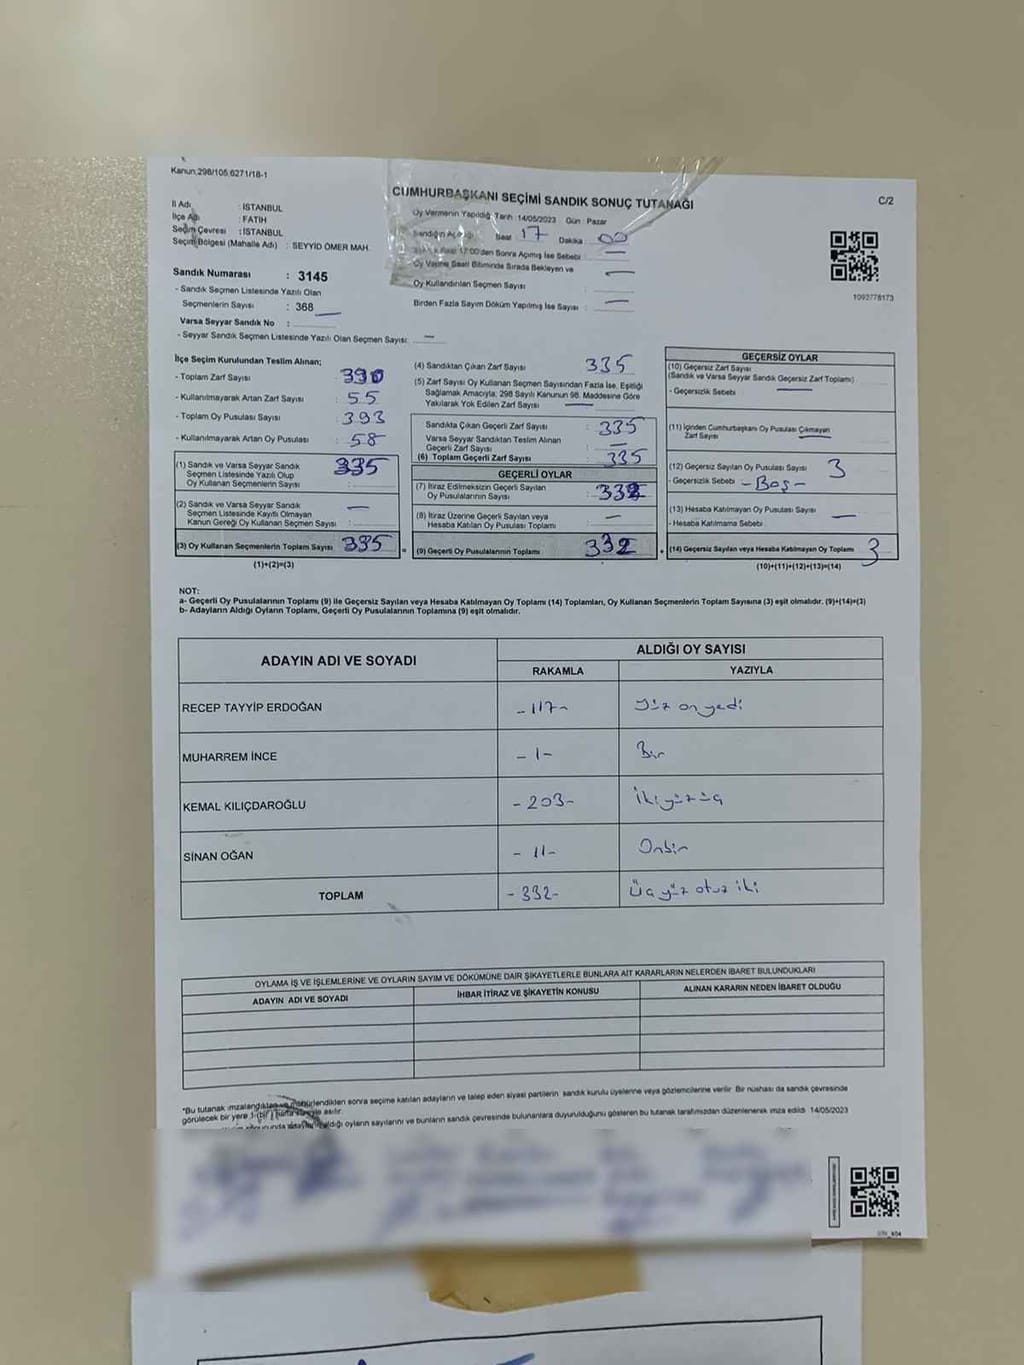 Kanun:298/105,6271/18-1
CUMHURBAŞKANI SEÇİMİ SANDIK SONUÇ TUTANAĞI
C/2
İl Adı : İSTANBUL
İlçe Adı : FATİH
Seçim Çevresi : İSTANBUL
Seçim Bölgesi (Mahalle Adı) : SEYYID ÖMER MAH.
Oy Vermenin Yapıldığı Tarih :14/05/2023 Gün : Pazar
Sandığın Açıldığı Saat 17 Dakika 00
17:00'den Sonra Açılmış İse Sebebi : —
Oy Verme Saati Bitiminde Sırada Bekleyen ve
Oy Kullandırılan Seçmen Sayısı : —
Birden Fazla Sayım Döküm Yapılmış İse Sayısı : —
1092778173
Sandık Numarası : 3145
- Sandık Seçmen Listesinde Yazılı Olan
Seçmenlerin Sayısı : 368
Varsa Seyyar Sandık No : —
- Seyyar Sandık Seçmen Listesinde Yazılı Olan Seçmen Sayısı: —
İlçe Seçim Kurulundan Teslim Alınan;
- Toplam Zarf Sayısı : 390
- Kullanılmayarak Artan Zarf Sayısı : 55
- Toplam Oy Pusulası Sayısı : 393
- Kullanılmayarak Artan Oy Pusulası : 58
(1) Sandık ve Varsa Seyyar Sandık
Seçmen Listesinde Yazılı Olup
Oy Kullanan Seçmenlerin Sayısı : 335
(2) Sandık ve Varsa Seyyar Sandık
Seçmen Listesinde Kayıtlı Olmayan
Kanun Gereği Oy Kullanan Seçmen Sayısı : —
(3) Oy Kullanan Seçmenlerin Toplam Sayısı : 335
(1)+(2)=(3)
(4) Sandıktan Çıkan Zarf Sayısı : 335
(5) Zarf Sayısı Oy Kullanan Seçmen Sayısından Fazla İse, Eşitliği
Sağlamak Amacıyla; 298 Sayılı Kanunun 98. Maddesine Göre
Yakılarak Yok Edilen Zarf Sayısı : —
Sandıkta Çıkan Geçerli Zarf Sayısı : 335
Varsa Seyyar Sandıktan Teslim Alınan
Geçerli Zarf Sayısı : —
(6) Toplam Geçerli Zarf Sayısı : 335
GEÇERLİ OYLAR
(7) İtiraz Edilmeksizin Geçerli Sayılan
Oy Pusulalarının Sayısı : 332
(8) İtiraz Üzerine Geçerli Sayılan veya
Hesaba Katılan Oy Pusulası Toplamı : —
(9) Geçerli Oy Pusulalarının Toplamı : 332
GEÇERSİZ OYLAR
(10) Geçersiz Zarf Sayısı
(Sandık ve Varsa Seyyar Sandık Geçersiz Zarf Toplamı)
- Geçersizlik Sebebi —
(11) İçinden Cumhurbaşkanı Oy Pusulası Çıkmayan
Zarf Sayısı —
(12) Geçersiz Sayılan Oy Pusulası Sayısı 3
- Geçersizlik Sebebi -Boş-
(13) Hesaba Katılmayan Oy Pusulası Sayısı —
- Hesaba Katılmama Sebebi
(14) Geçersiz Sayılan veya Hesaba Katılmayan Oy Toplamı 3
(10)+(11)+(12)+(13)=(14)
NOT:
a- Geçerli Oy Pusulalarının Toplamı (9) ile Geçersiz Sayılan veya Hesaba Katılmayan Oy Toplamı (14) Toplamları, Oy Kullanan Seçmenlerin Toplam Sayısına (3) eşit olmalıdır. (9)+(14)=(3)
b- Adayların Aldığı Oyların Toplamı, Geçerli Oy Pusulalarının Toplamına (9) eşit olmalıdır.
ADAYIN ADI VE SOYADI
ALDIĞI OY SAYISI
RAKAMLA YAZIYLA
RECEP TAYYİP ERDOĞAN -117- Yüz on yedi
MUHARREM İNCE -1- Bir
KEMAL KILIÇDAROĞLU -203- İkiyüzüç
SİNAN OĞAN -11- Onbir
TOPLAM -332- Üçyüz otuz iki
OYLAMA İŞ VE İŞLEMLERİNE VE OYLARIN SAYIM VE DÖKÜMÜNE DAİR ŞİKAYETLERLE BUNLARA AİT KARARLARIN NELERDEN İBARET BULUNDUKLARI
ADAYIN ADI VE SOYADI İHBAR İTİRAZ VE ŞİKAYETİN KONUSU ALINAN KARARIN NEDEN İBARET OLDUĞU
*Bu tutanak imzalandıktan ve mühürlendikten sonra seçime katılan adayların ve talep eden siyasi partilerin sandık kurulu üyelerine veya gözlemcilerine verilir. Bir nüshası da sandık çevresinde
görülecek bir yere 1 (bir) hafta süreyle asılır.
aldığı oyların sayılarını ve bunların sandık çevresinde bulunanlara duyurulduğunu gösteren bu tutanak tarafımızdan düzenlenerek imza edildi. 14/05/2023